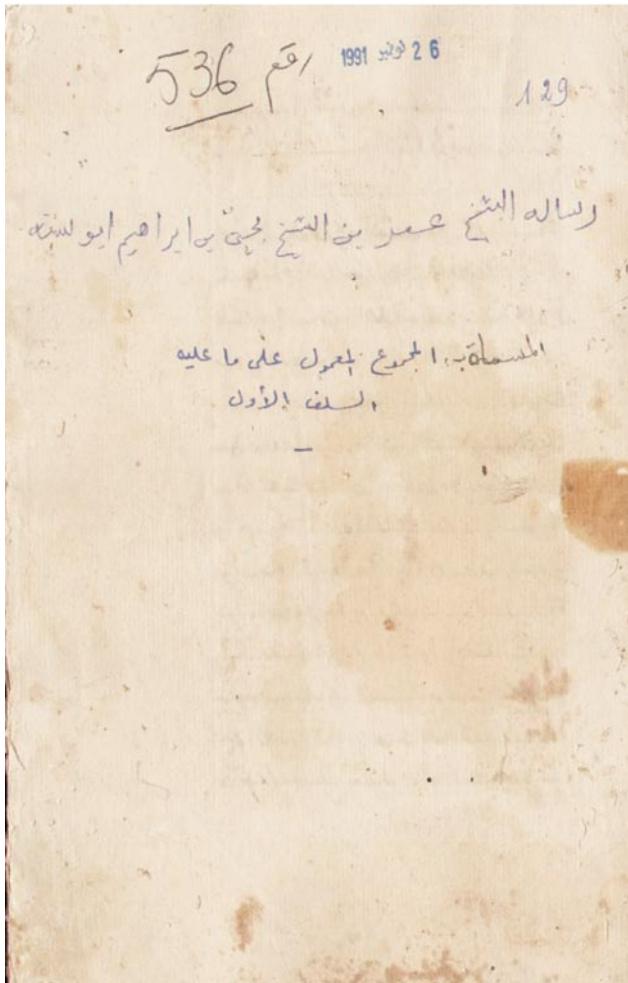 رقم 536
26 نوفمبر 1991
129
رساله الشيخ عمر بن الشيخ يحيى بن ابراهيم ابو سته
المسماة بـ: المجموع المعول على ما عليه
السلف الأول